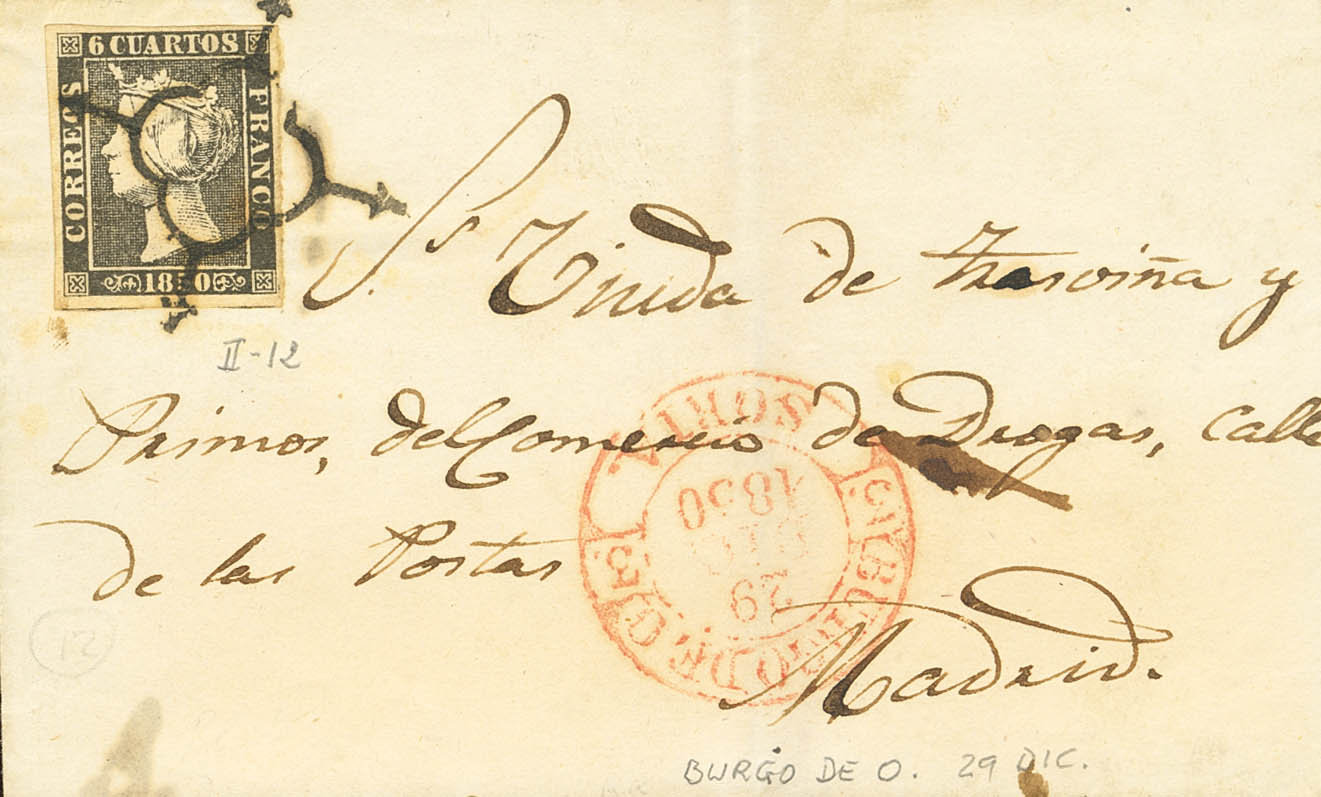 6 CUARTOS
CORREOS
FRANCO
1850
II-12
Sr. Viuda de Trasviña y
Primos, del Comercio de Drogas, Calle
de las Postas
Madrid.
SORIA
BURGO DE O.
29 DIC 1850
12
BURGO DE O. 29 DIC.